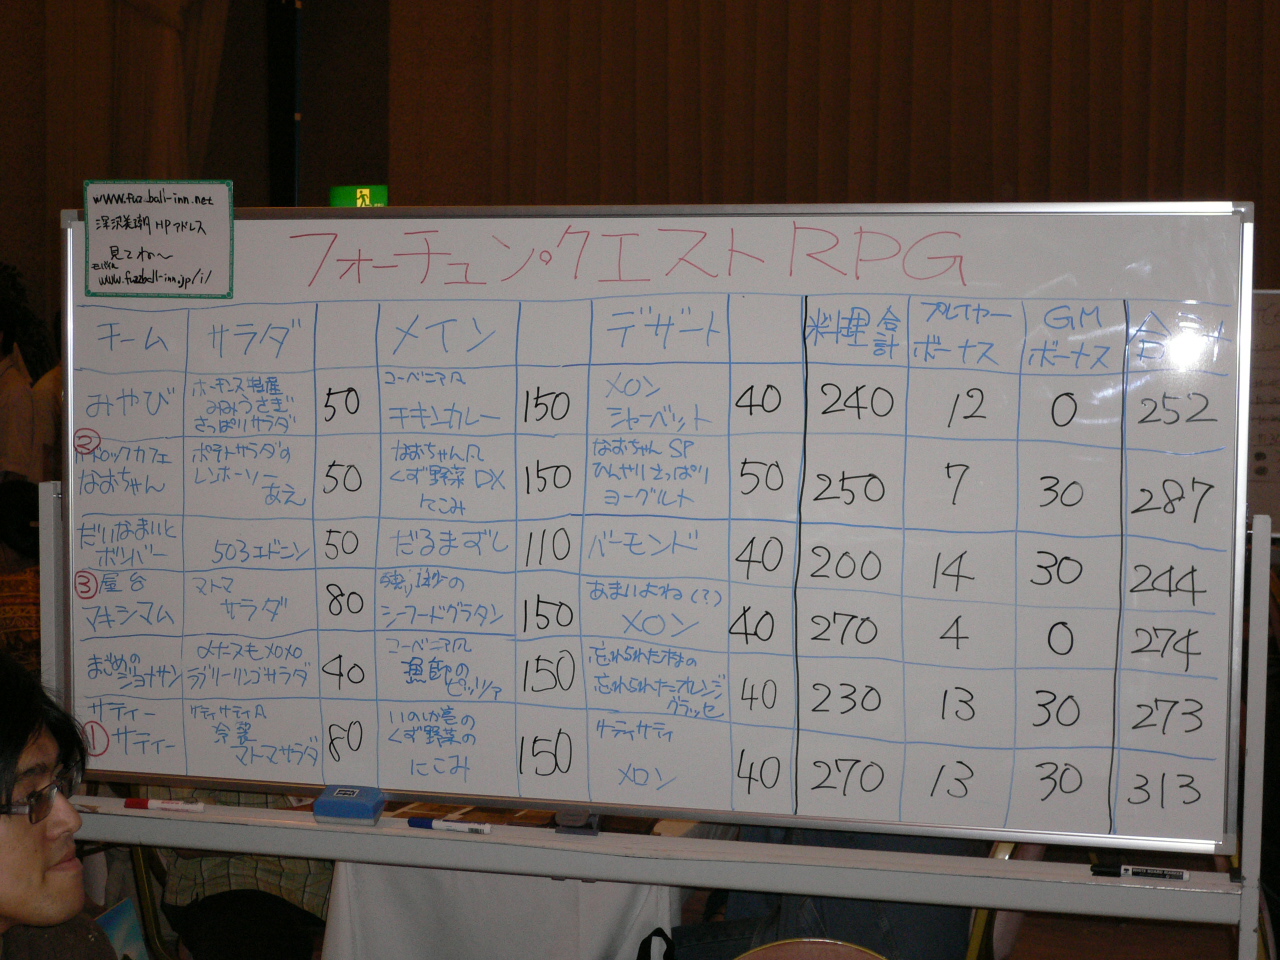 www.fuz.ball-inn.net
深沢美潮HPアドレス
見てね〜
モバイル
www.fuzzball-inn.jp/i/
フォーチュン・クエストRPG
チーム サラダ メイン デザート 料理合計 プレイヤーボーナス GMボーナス 合計
みやび
ホーキンス特産
みみうさぎ
さっぱりサラダ
50
コーベニア風
チキンカレー
150
メロン
シャーベット
40
240
12
0
252
②
ロックカフェ
なおちゃん
ポテトサラダの
レンホーソー
あえ
50
なおちゃん風
くず野菜DX
にこみ
150
なおちゃんSP
ひんやりさっぱり
ヨーグルト
50
250
7
30
287
だいなまいと
ボンバー
503エドニン
50
だるまずし
110
バーモンド
40
200
14
30
244
③屋台
マキシマム
マトマ
サラダ
80
の
シーフードグラタン
150
あまいよね(?)
メロン
40
270
4
0
274
まじめの
ジョナサン
メナースもメロメロ
ラブリーリンゴサラダ
40
コーベニア風
漁師の
ピッツァ
150
忘れられた村の
忘れられたオレンジ
グラッセ
40
230
13
30
273
サティー
①サティー
サティサティ風
冷製
マトマサラダ
80
いのしか亭の
くず野菜の
にこみ
150
サティサティ
メロン
40
270
13
30
313